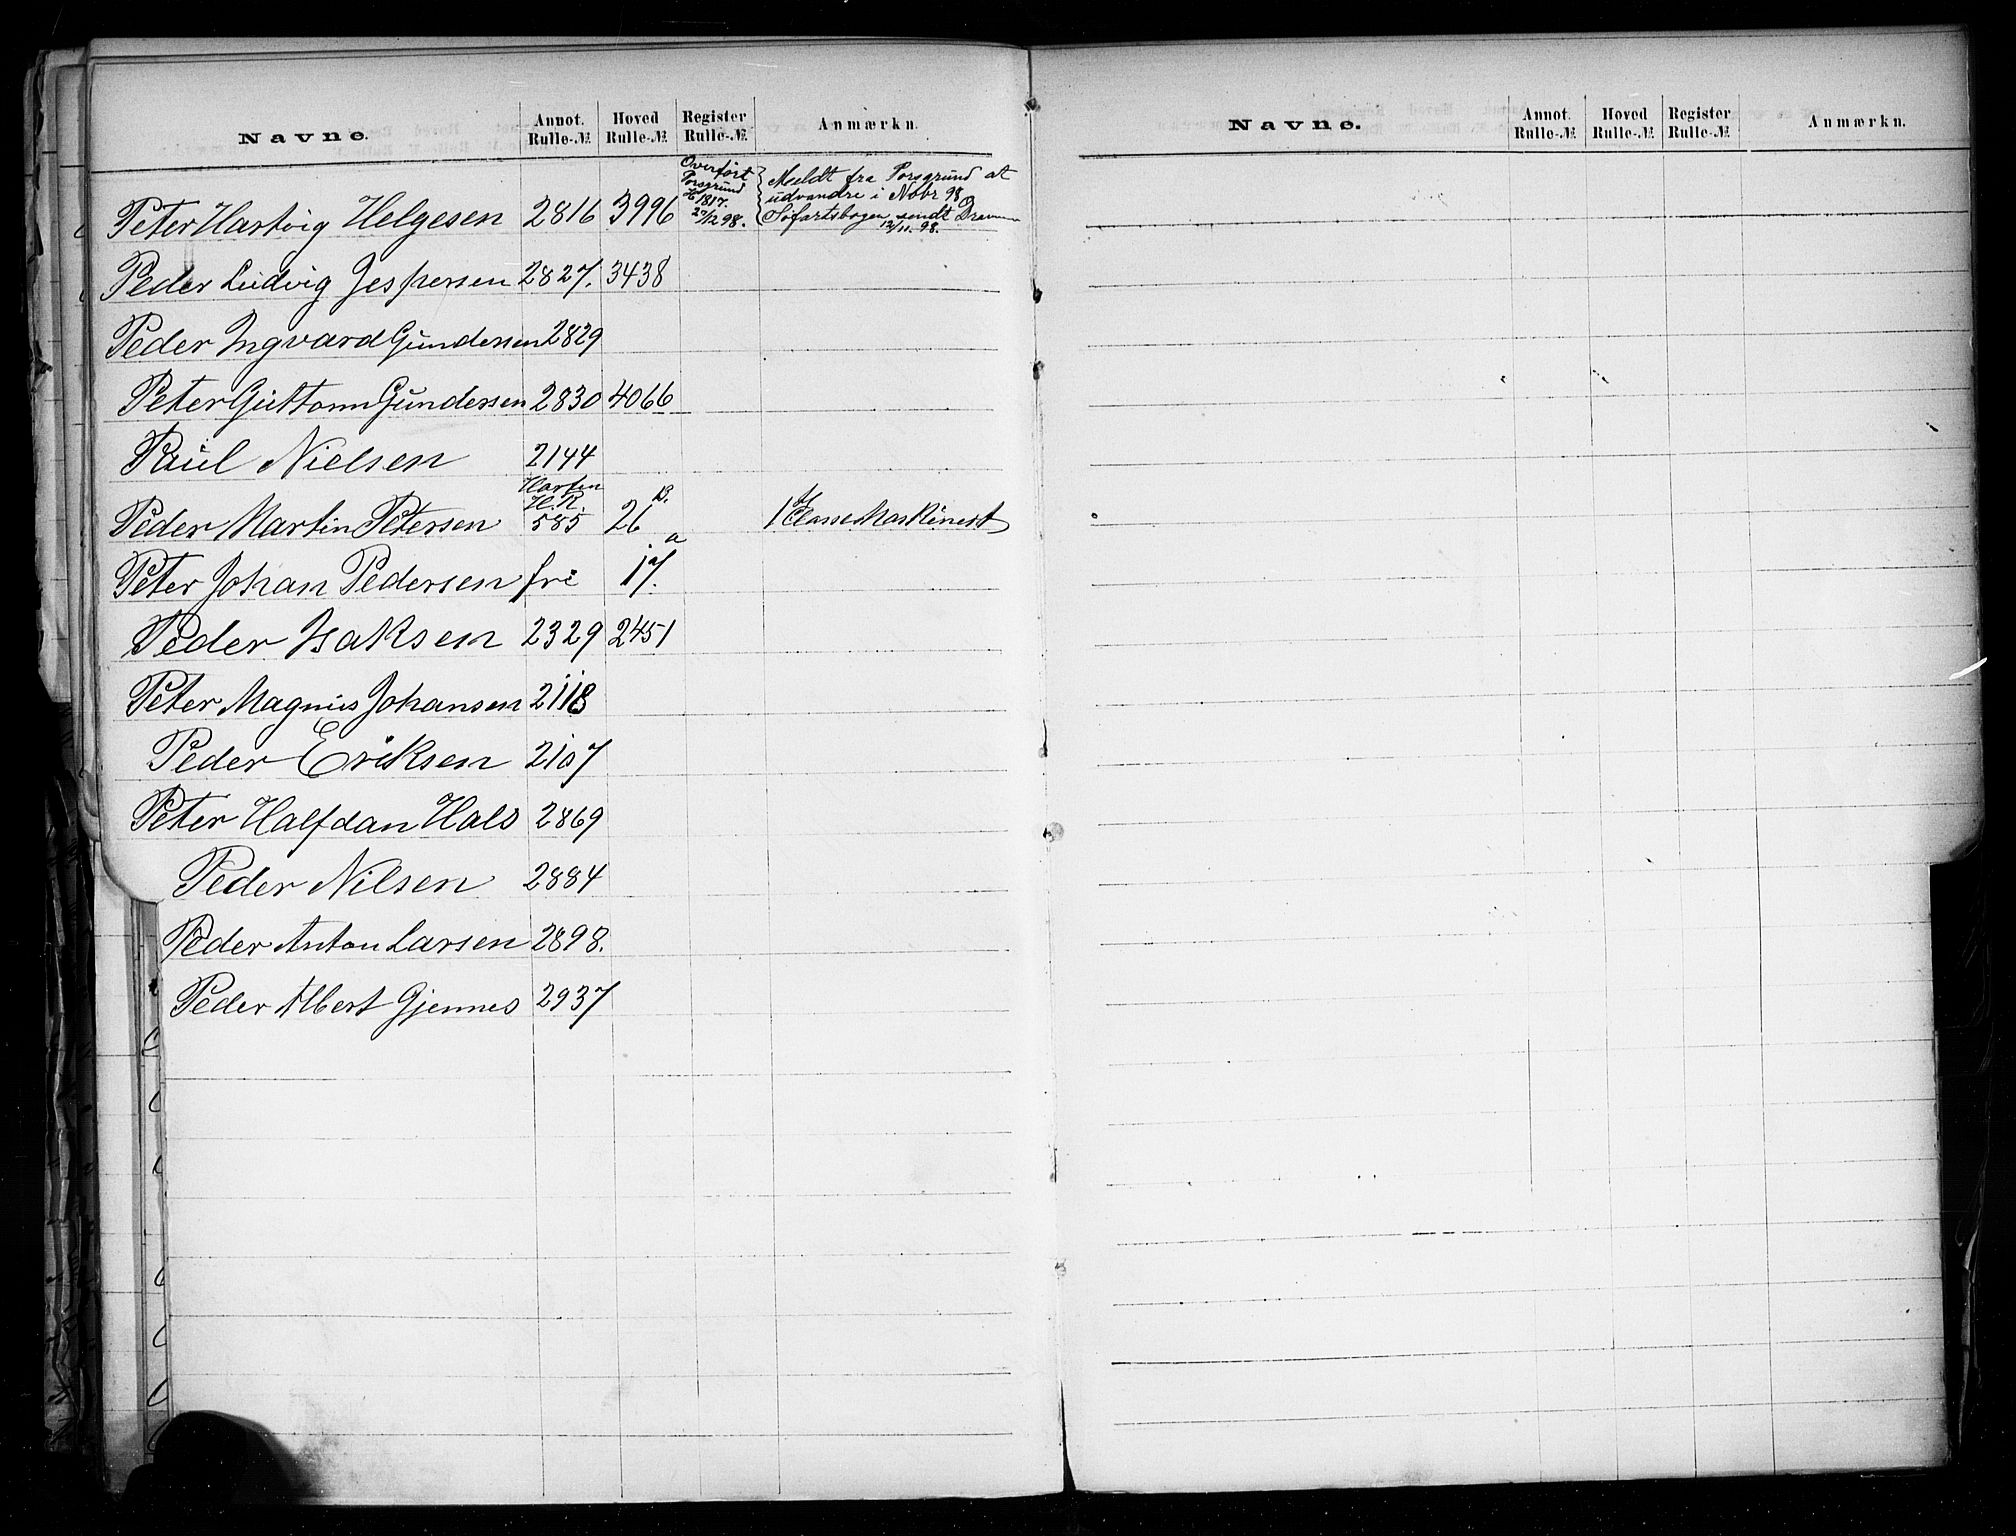 Navne. Annot. Rulle-№ Hoved Rulle-№ Register Rulle-№ Anmærkn.
Peter Hartvig Helgesen 2816 3996 Overført Porsgrund H 1817. 27/12 98. Meldt fra Porsgrund at
udvandre i Novbr 98
Søfartsbogen sendt Dramm
12/11. 98.
Peder Ludvig Jespersen 2827. 3438
Peder Ingvard Gundersen 2829
Peter Guttorm Gundersen 2830 4066
Paul Nielsen 2144
Peder Martin Petersen H.R. 585 26 B. 1 Classe Maskinist
Peter Johan Pedersen fri 17. a
Peder Isaksen 2329 2451
Peter Magnus Johansen 2118
Peder Eriksen 2107
Peter Halfdan Hals 2869
Peder Nilsen 2884
Peder Anton Larsen 2898.
Peder Albert Gjennes 2937
Navne. Annot. Rulle-№ Hoved Rulle-№ Register Rulle-№ Anmærkn.